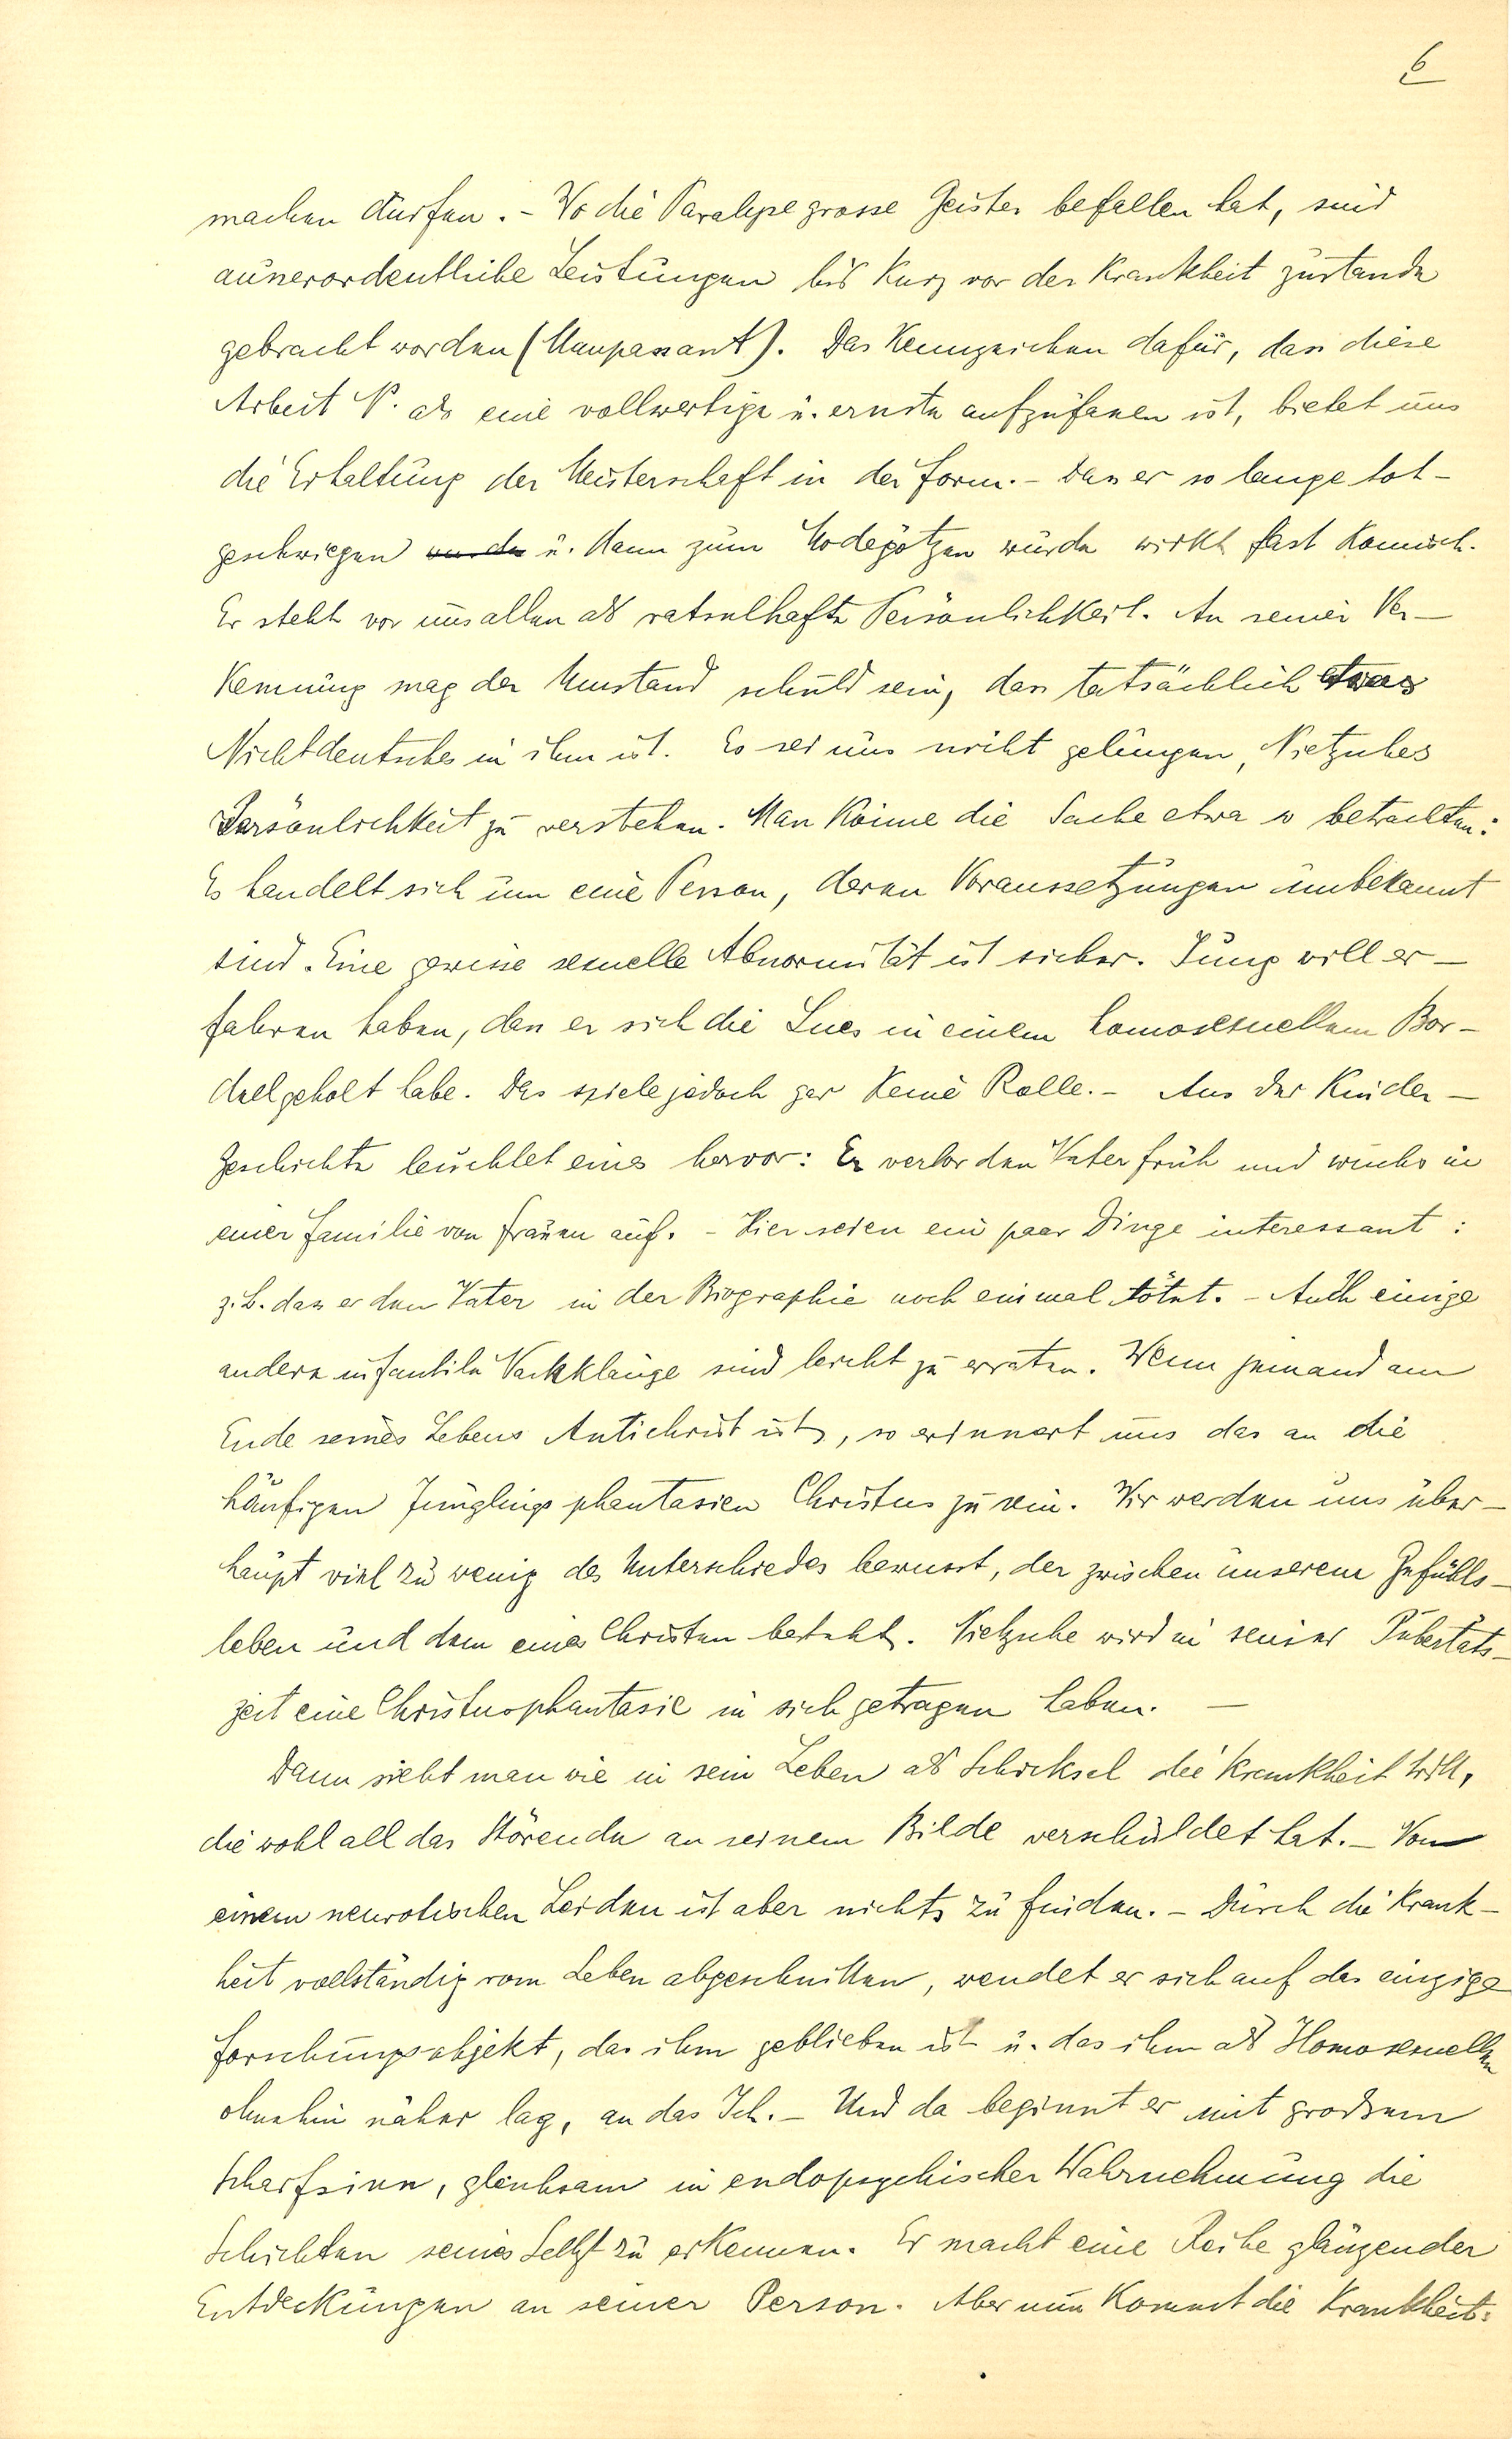 6
machen dürfen. - Wo die Paralyse grosse Geister befallen hat, sind
außerordentliche Leistungen bis kurz vor der Krankheit zustande
gebracht worden (Maupassant). Das Kennzeichen dafür, dass diese
Arbeit N. als eine vollwertige u. ernste aufzufassen ist, bietet uns
die Erhaltung der Meisterschaft in der Form. - Dass er so lange tot-
geschwiegen wurde u. dann zum Modegötzen wurde wirkt fast komisch.
Er steht vor uns allen als rätselhafte Persönlichkeit. An seiner Ver-
kennung mag der Umstand schuld sein, dass tatsächlich etwas
Nichtdeutsches in ihm ist. Es sei uns nicht gelungen, Nietzsches
Persönlichkeit zu verstehen. Man könne die Sache etwa so betrachten:
Es handelt sich um eine Person, deren Voraussetzungen unbekannt
sind. Eine gewisse sexuelle Abnormität ist sicher. Jung will er-
fahren haben, dass er sich die Lues in einem homosexuellem Bor-
dell geholt habe. Das spiele jedoch gar keine Rolle. - Aus der Kinder-
geschichte leuchtet eines hervor: Er verlor den Vater früh und wuchs in
einer Familie von Frauen auf. - Hier seien ein paar Dinge interessant:
z.B. dass er den Vater in der Biographie noch einmal tötet. - Auch einige
andere infantile Nachklänge sind leicht zu erraten. Wenn jemand am
Ende seines Lebens Antichrist ist, so erinnert uns das an die
häufigen Jünglingsphantasien Christus zu sein. Wir werden uns über-
haupt viel zu wenig des Unterschiedes bewusst, der zwischen unserem Gefühls-
leben und dem eines Christen besteht. Nietzsche wird in seiner Pubertäts-
zeit eine Christusphantasie in sich getragen haben. -
Dann sieht man wie in sein Leben als Schicksal die Krankheit tritt,
die wohl all das Störende an seinem Bilde verschuldet hat. - Von
einem neurotischen Leiden ist aber nichts zu finden. - Durch die Krank-
heit vollständig vom Leben abgeschnitten, wendet er sich auf das einzige
Forschungsobjekt, das ihm geblieben ist u. das ihm als Homosexuellen
ohnehin näher lag, an das Ich. - Und da beginnt er mit großem
Scharfsinn, gleichsam in endopsychischer Wahrnehmung die
Schichten seines Selbst zu erkennen. Er macht eine Reihe glänzender
Entdeckungen an seiner Person. Aber nun kommt die Krankheit: